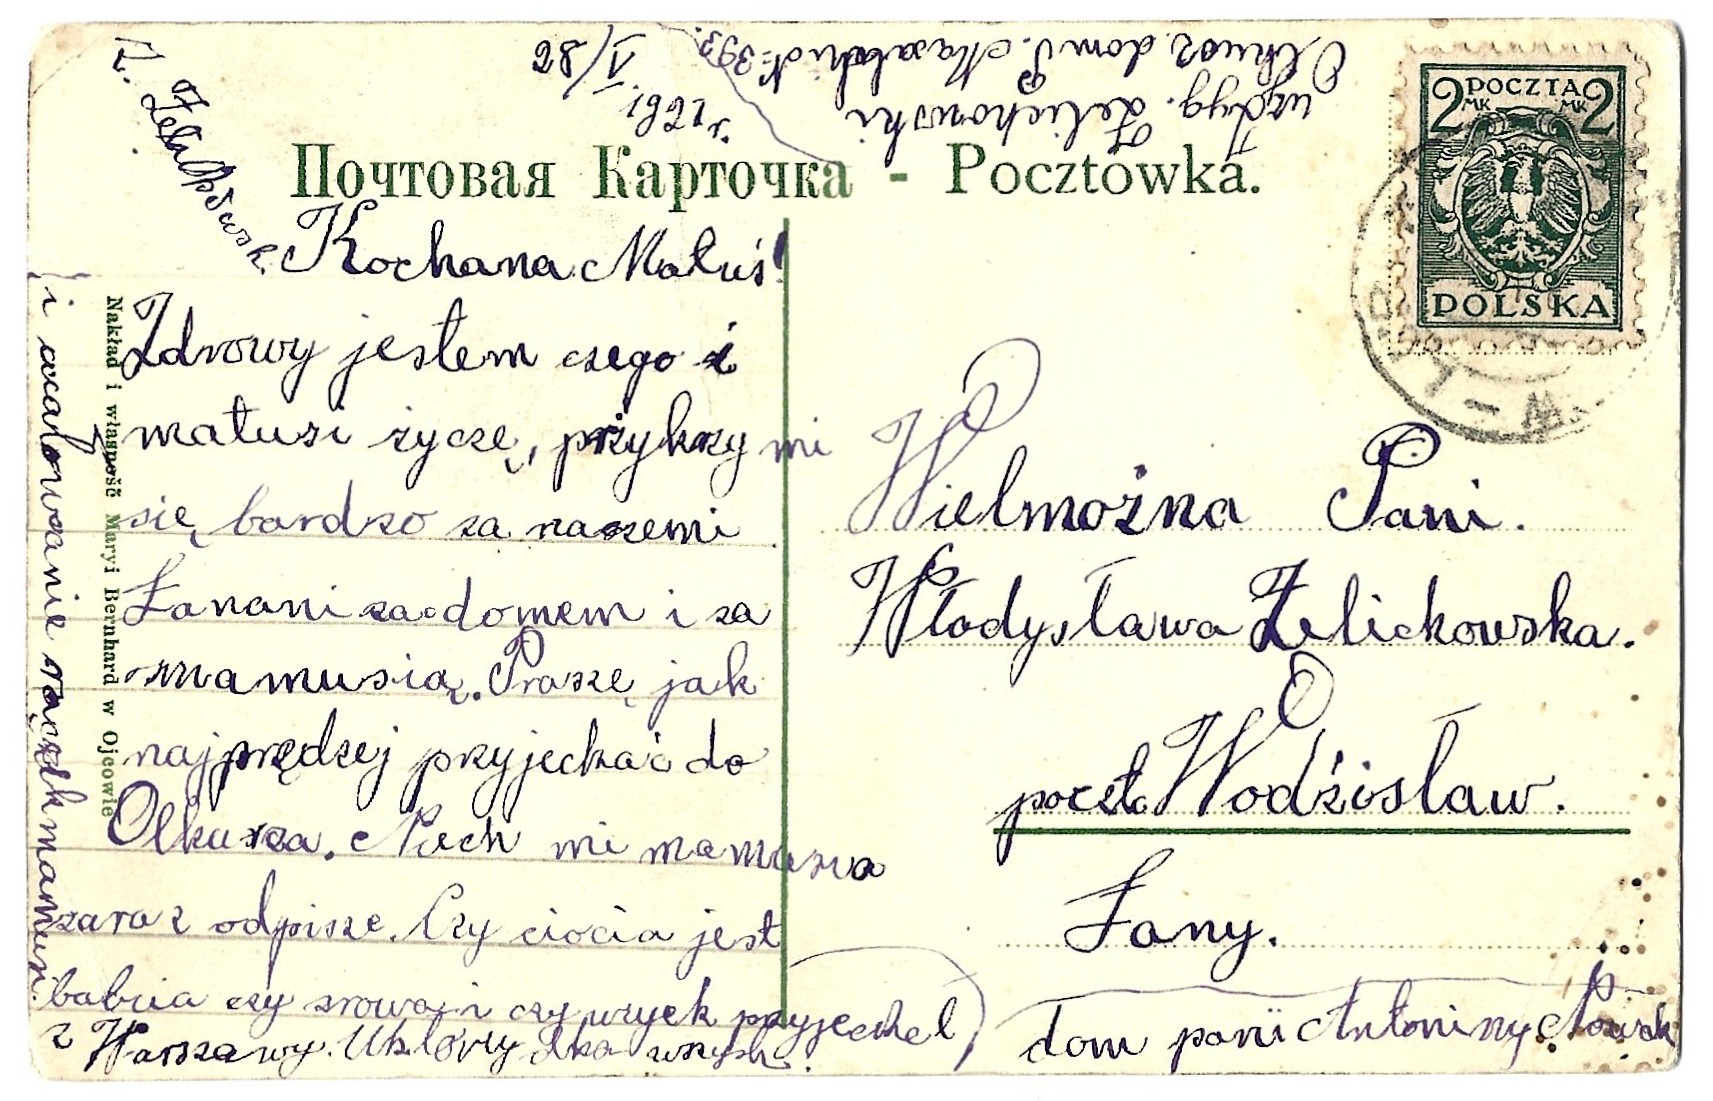 Почтовая Карточка - Pocztówka.
POCZTA
2 MK MK 2
POLSKA
Olkusz. dom P. Nr 393.
Zelichowski
1921 r.
Kochana Matuś!
Zdrowy jestem czego i
matusi życzę, przykrzy mi
się bardzo za naszemi
Łanani za domem i za
mamusią. Proszę jak
najprędzej przyjechać do
Olkusza. Niech mi mamusia
zaraz odpisze. Czy ciocia jest
babcia czy zrowa i czy wujek przyjechał
z Warszawy. Ukłony dla wszyst.
i ucałowanie rączek mamusi.
Nakład i własność Maryi Bernhard w Ojcowie
Wielmożna Pani.
Władysława Zelichowska.
poczta Wodźisław.
Łany.
dom pani Antoniny Nowak